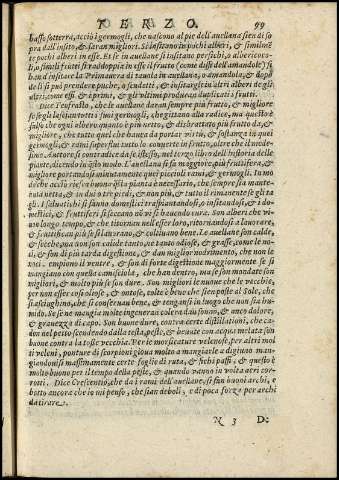 TERZO. 99
basso sotterra, acciò i germogli, che nascono al pie dell'auellana sien di so
pra dall'insito, & saran migliori. Si insitano in pichi alberi, & similmẽ
te pichi alberi in esse. Et se in auellane si insitano persichi, o albericoc-
chi, o simili frutti si raddoppia in esse il frutto (come dissi dell'amandole) si
han da insitare la Primauera di tauola in auellana, o amandola, & dopo
de li si può prendere puche, o scudetti, & insitargli in altri alberi de gli
altri, come essi & i primi, & gli vltimi producono duplicati i frutti.
Dice Teofrasto, che le auellane daran sempre più frutto, & migliore
se se gli lasciano tutti i suoi germogli, che gittano alla radice, ma questo è
falso che ogni albero, quanto è più netto, & disbrattato più frutto da, &
migliore, che tutto quel che hauea da portar virtù, & sostanza in quei
germogli, & rami superflui tutto lo conuerte in frutto, oltre che il mede-
simo Autore si contradice da se istesso, nel terzo libro dell'historia delle
piante, dicendo in q̃sto modo. L'auellana si fa maggiore, più fruttifera, &
migliore portandosi minutamente quei piccioli rami, & germogli. In mo
do che acciò riesca buona q̃sta pianta è necessario, che sempre sia mante-
nuta netta, & in dui o tre piedi, & non più, & tutto il rimanente se gli ta
gli. I saluatichi si fanno domestici traspiantandosi, o insitandosi, & i do
mestici, & fruttiferi si seccano nõ vi si hauendo cura. Son alberi che vi-
uon lungo tempo, & che tiuornan nell'esser loro, ritornandosi a lauorare,
& fruttifican più se si lauorano, & conciano bene. Le auellane son calde,
& secche, ma non son calide tanto, ne tanto odiose, & grasse, come le no-
ci, & son di più tarda digestione, & dan miglior nudrimento, che non le
noci. empiono il ventre, & son di forte digestione maggiormente se si
mangiano con quella camisciola, che han dentro, ma se son mondate son
migliori, & molto più se son dure. Son migliori le nuoue che le vecchie,
per non esser così oliose, & ontose, colte è bene che sien poste al Sole, che
si asciughino, che si conseruan bene, & tengansi in luogo che non sia hu-
mido. Se se ne mangia molte ingeneran colera da stomaco, & anco dolore,
& grauezza di capo. Son buone dure, contra certe distillationi, che ca-
don nel petto scendendo dalla testa, peste, & beuute con acqua melata son
buone contra la tosse vecchia. Per le morsicature velenose, per altri mol
ti veleni, ponture di scorpioni gioua molto a mangiarle a digiuno man-
giandouisi massimamente certe foglie di ruta, & fichi passi, & questo è
molto buono per il tempo della peste, & quando vanno in volta aeri cor-
rotti. Dice Crescentio, che da i rami dell'auellane, si fan buoni archi, e
botto ancora che io nol penso, che sian deboli, e di poca forza per archi
da tirare.
N 3 D: